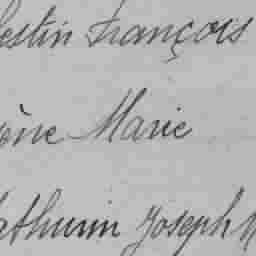 estin François
ène Marie
athurin Joseph M